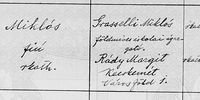 Miklós
fiú
rkath.
Grasselli Miklós
földmíves iskolai igaz-
gató.
Rády Margit
Kecskemét
Városföld 1.
rkath